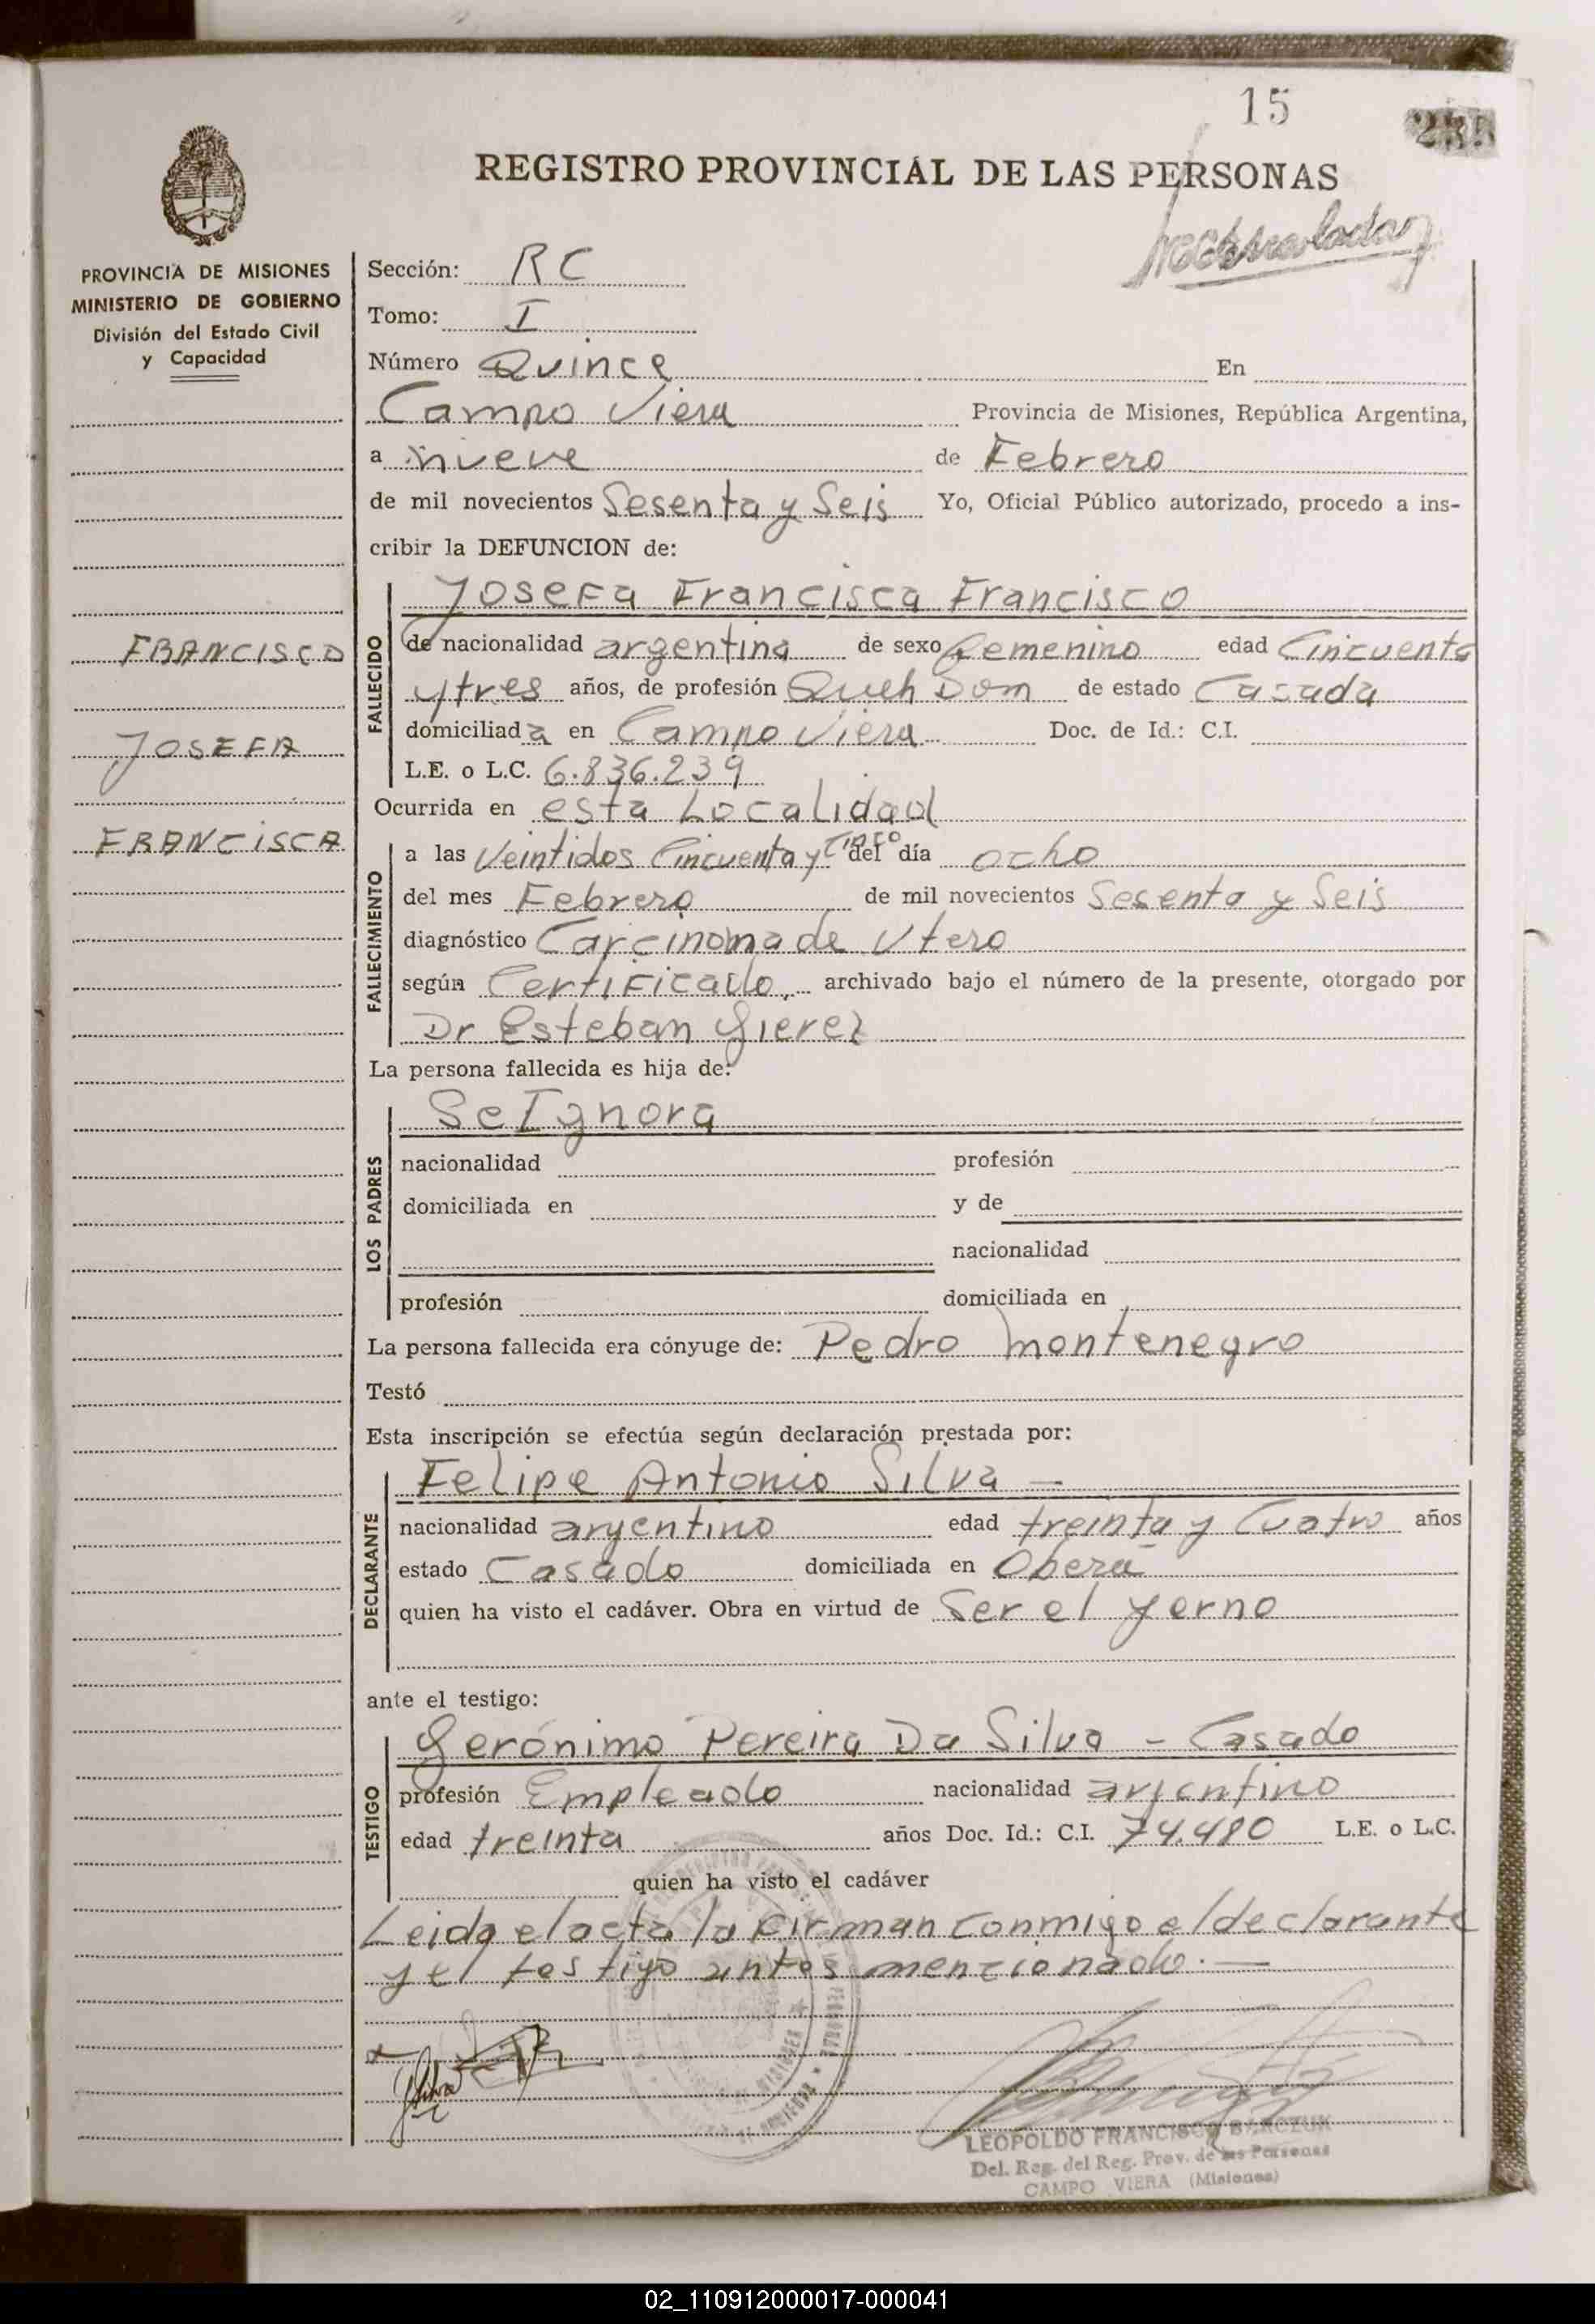 15
REGISTRO PROVINCIAL DE LAS PERSONAS
PROVINCIA DE MISIONES
MINISTERIO DE GOBIERNO
División del Estado Civil
y Capacidad
Sección: RC
Tomo: I
Número Quince En
Campo Viera Provincia de Misiones, República Argentina,
a nueve de Febrero
de mil novecientos Sesenta y Seis Yo, Oficial Público autorizado, procedo a ins-
cribir la DEFUNCION de:
FRANCISCO
JOSEFA
FRANCISCA
FALLECIDO
Josefa Francisca Francisco
de nacionalidad argentina de sexo femenino edad Cincuenta
y tres años, de profesión Queh Dom de estado Casada
domiciliada en Campo Viera Doc. de Id.: C.I.
L.E. o L.C. 6.836.239
Ocurrida en esta Localidad
FALLECIMIENTO
a las Veintidos Cincuenta y Cinco del día ocho
del mes Febrero de mil novecientos Sesenta y Seis
diagnóstico Carcinoma de Utero
según Certificado, archivado bajo el número de la presente, otorgado por
Dr Esteban Gierez
La persona fallecida es hija de:
LOS PADRES
Se Ignora
nacionalidad profesión
domiciliada en y de
nacionalidad
profesión domiciliada en
La persona fallecida era cónyuge de: Pedro Montenegro
Testó
Esta inscripción se efectúa según declaración prestada por:
DECLARANTE
Felipe Antonio Silva —
nacionalidad argentino edad treinta y Cuatro años
estado Casado domiciliada en Oberá
quien ha visto el cadáver. Obra en virtud de Ser el yerno
ante el testigo:
TESTIGO
Gerónimo Pereira Da Silva - Casado
profesión Empleado nacionalidad argentino
edad treinta años Doc. Id.: C.I. 74.480 L.E. o L.C.
quien ha visto el cadáver
Leida el acta la firman conmigo el declarante
y el testigo antes mencionado.—
Silva
LEOPOLDO FRANCISCO BARCZUK
Del. Reg. del Reg. Prov. de las Personas
CAMPO VIERA (Misiones)
02_110912000017-000041